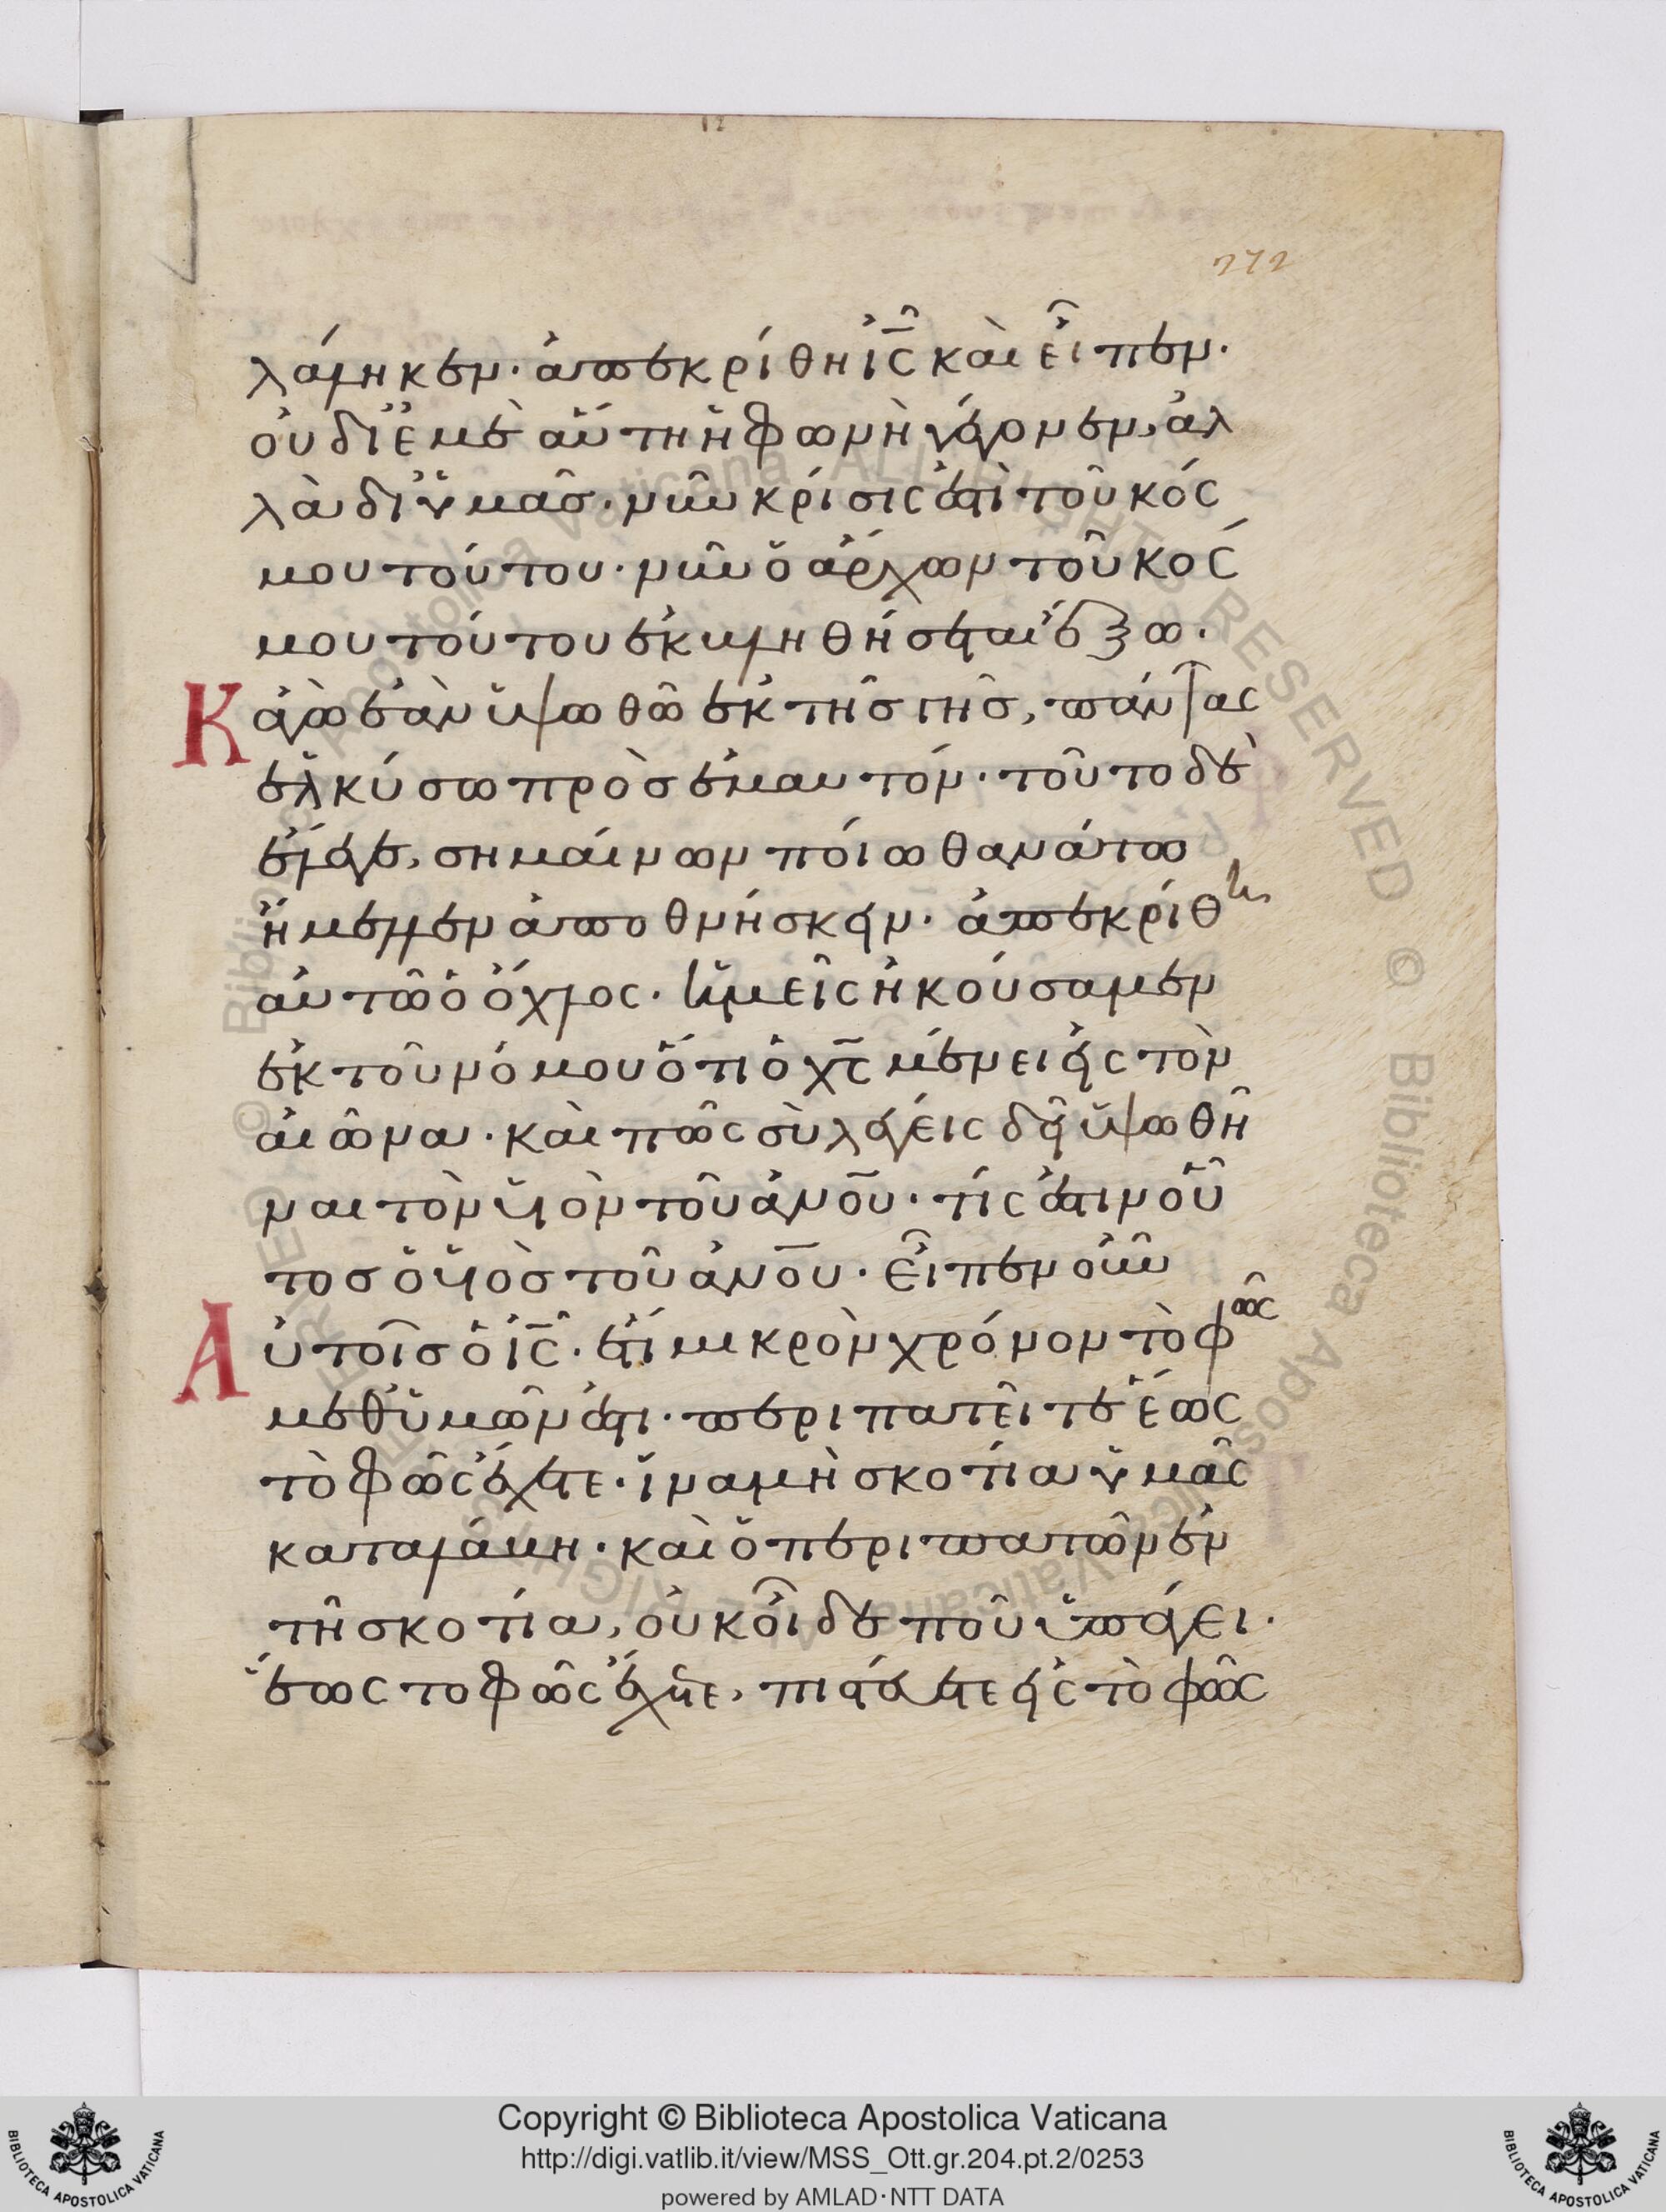 272
λάληκεν· ἀπεκρίθη ἰ̅ς̅ καὶ εἶπεν·
οὐ δι' ἐμὲ αὕτη ἡ φωνὴ γέγονεν, ἀλ
λὰ δι' ὑμᾶσ· νῦν κρίσις ἐστὶ τοῦ κόσ
μου τούτου· νῦν ὁ ἄρχων τοῦ κόσ
μου τούτου ἐκβληθήσεται ἔξω·
Κἀγὼ ἐὰν ὑψωθῶ ἐκ τῆσ γῆσ, πάντας
ἑλκύσω πρὸσ ἐμαυτόν· τοῦτο δὲ
ἔλεγε, σημαίνων ποίω θανάτω
ἤμελλεν ἀποθνήσκειν· ἀπεκρίθη
αὐτῶ ὁ ὄχλος· ἡμεῖς ἠκούσαμεν
ἐκ τοῦ νόμου ὅτι ὁ χ̅ς̅ μένει εἰς τὸν
αἰῶνα· καὶ πῶς σὺ λέγεις δεῖ ὑψωθῆ
ναι τὸν υἱὸν τοῦ ἀν̅ο̅υ̅· τίς ἐστιν οὗ
τοσ ὁ υἱὸσ τοῦ ἀν̅ο̅υ̅· εἶπεν οὖν
Αὐτοῖσ ὁ ἰ̅ς̅· ἔτι μικρὸν χρόνον τὸ φῶς
μεθ' ὑμῶν ἐστι· περιπατεῖτε ἕως
τὸ φῶς ἔχετε· ἵνα μὴ σκοτία ὑμᾶς
καταλάβη· καὶ ὁ περιπατῶν ἐν
τῆ σκοτία, οὐκ οἶδε ποῦ ὑπάγει·
ἕως το φῶς ἔχετε, πιστεύετε εἰς τὸ φῶς
Copyright © Biblioteca Apostolica Vaticana
http://digi.vatlib.it/view/MSS_Ott.gr.204.pt.2/0253
powered by AMLAD·NTT DATA
BIBLIOTECA APOSTOLICA VATICANA
BIBLIOTECA APOSTOLICA VATICANA